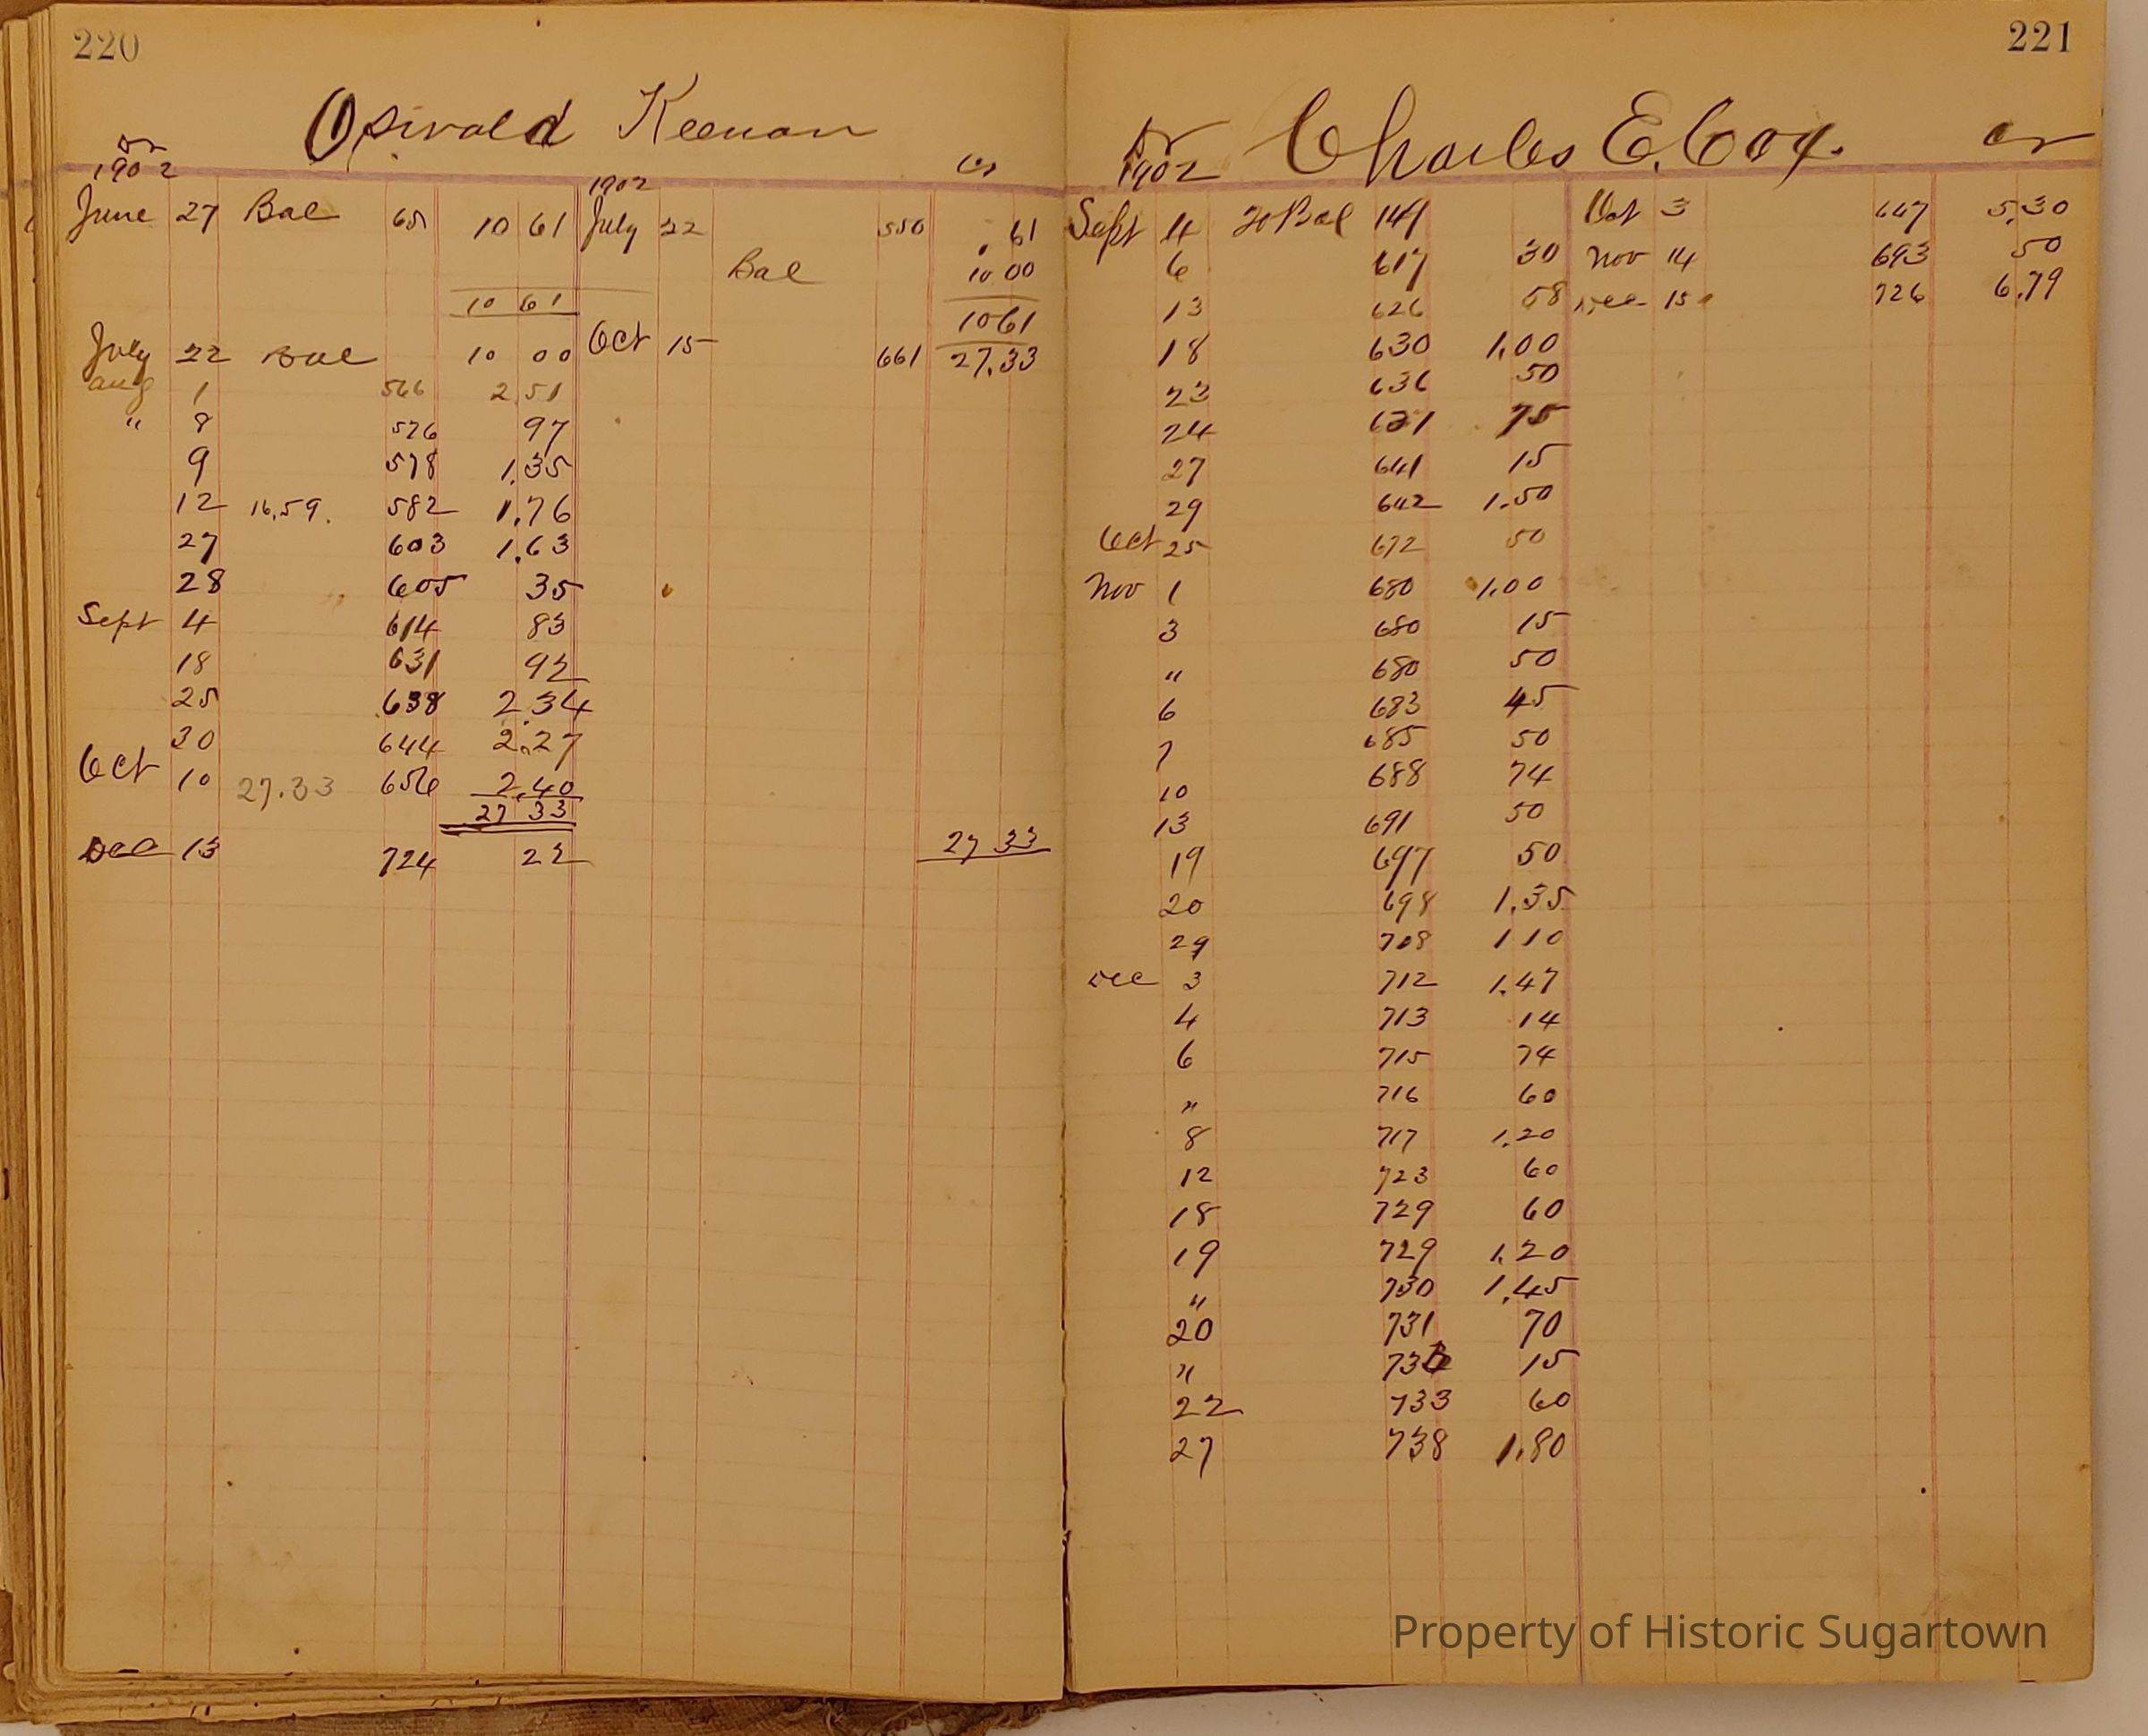 220
Oswald Keenan
Dr Cr
1902 1902
June 27 Bal 65 10 61 July 22 550 .61
Bal 10 00
10 61 1061
July 22 Bal 10 00 Oct 15 661 27.33
Aug 1 566 2.51
" 8 576 97
9 578 1.35
12 16.59. 582 1.76
27 603 1.63
28 605 35
Sept 4 614 83
18 631 92
25 638 2.34
30 644 2.27
Oct 10 27.33 656 2.40
27 33
27 33
Dec 13 724 22
221
Dr Charles E. Cox. Cr
1902
Sept 4 To Bal 149 Oct 3 647 5.30
6 617 30 Nov 14 693 50
13 626 58 Dec 15 726 6.79
18 630 1.00
23 636 50
24 75
27 641 15
29 642 1.50
Oct 25 672 50
Nov 1 680 1.00
3 680 15
" 680 50
6 683 45
7 685 50
10 688 74
13 691 50
19 697 50
20 698 1.35
29 708 1 10
Dec 3 712 1.47
4 713 14
6 715 74
" 716 60
8 717 1.20
12 723 60
18 729 60
19 729 1.20
" 730 1.45
20 731 70
" 15
22 733 60
27 738 1.80
Property of Historic Sugartown